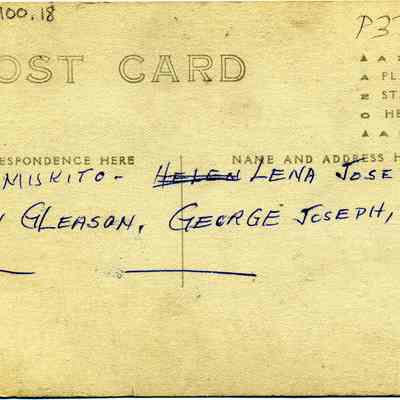 100.18
P3
POST CARD
ESPONDENCE HERE
NAME AND ADDRESS H
PL
ST
HE
MISKITO - HELEN LENA JOSE
GLEASON, GEORGE JOSEPH,